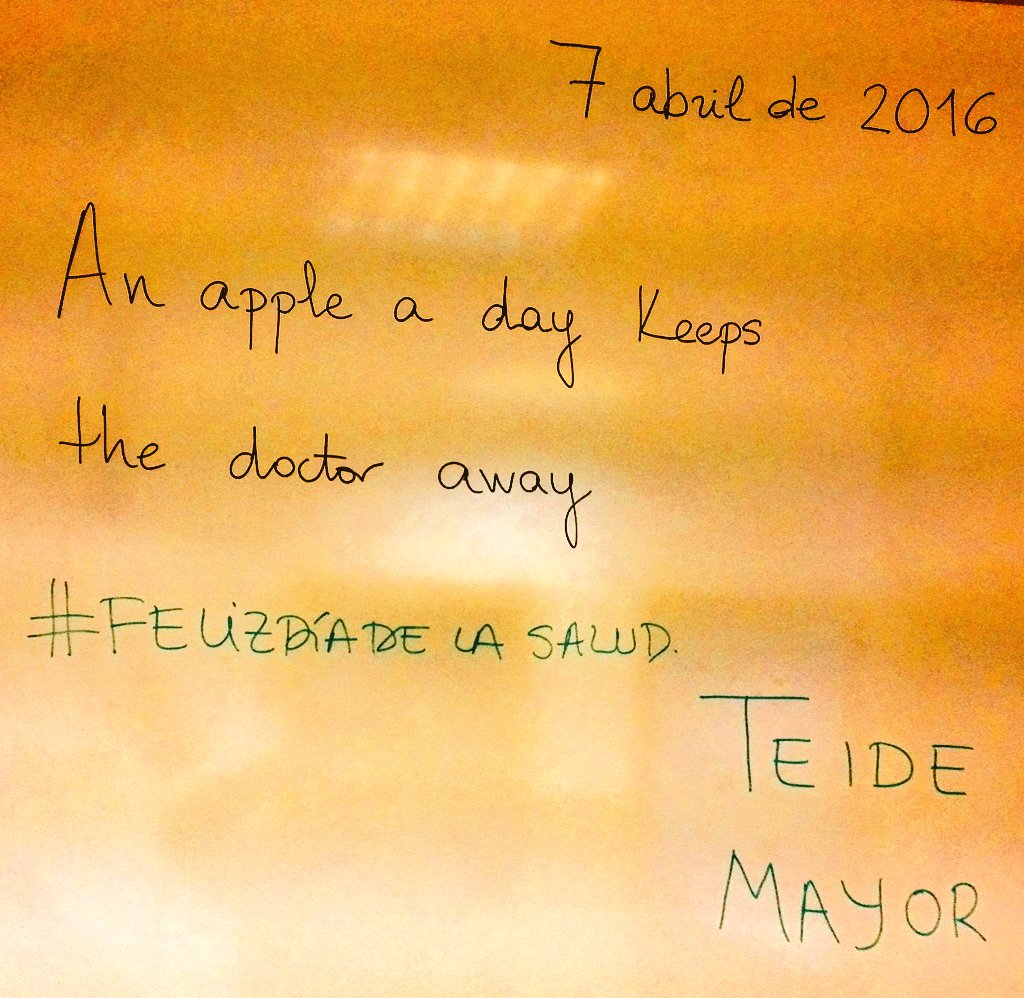 7 abril de 2016
An apple a day keeps
the doctor away
#FELiZDÍADE LA SALUD.
TEIDE
MAYOR